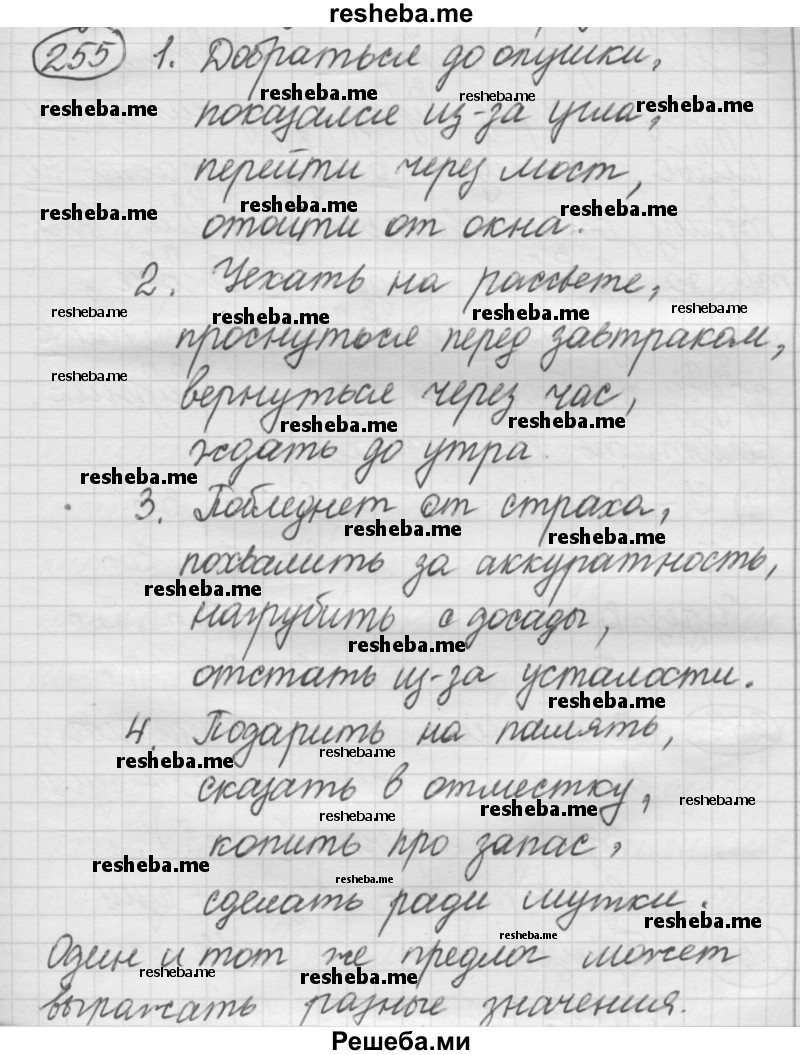 resheba.me
255 1. Добраться до опушки,
resheba.me resheba.me resheba.me resheba.me
показался из-за угла,
перейти через мост,
resheba.me resheba.me resheba.me
отойти от окна.
2. Уехать на рассвете,
resheba.me resheba.me resheba.me resheba.me
проснуться перед завтраком,
resheba.me
вернуться через час,
resheba.me resheba.me
ждать до утра.
resheba.me
3. Побледнет от страха,
resheba.me resheba.me
похвалить за аккуратность,
resheba.me
нагрубить с досады,
resheba.me
отстать из-за усталости.
resheba.me
4. Подарить на память,
resheba.me resheba.me
сказать в отместку,
resheba.me resheba.me resheba.me
копить про запас,
resheba.me resheba.me
сделать ради шутки.
resheba.me resheba.me
Один и тот же предлог может
resheba.me resheba.me
выражать разные значения.
Решеба.ми